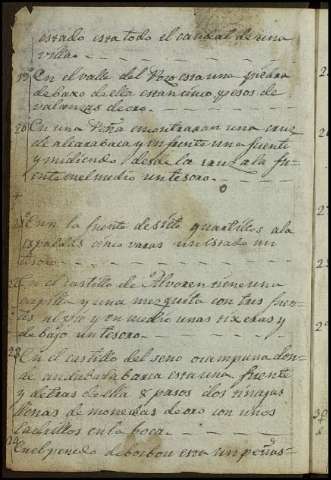 estado esta todo el caudal de una
villa
19 En el valle del Pozo esta una piedra
debaxo de ella estan cinco pesos de
valanzas de oro
20 En una Peña encontraran una cruz
de alcarabaca y en frente una fuente
y midiendo desde la cruz a la fu-
ente en el medio un tesoro
+
En la fuente de siete quartillos a la
espalda cinco varas un estado un
tesoro
En el castillo de Alvoren tiene una
capilla y una mezquita con tres fuen-
y en medio unas
debajo un tesoro
En el castillo del seno
de andubo la barca esta una fuente
y detras de ella 8 pasos dos tinajas
llenas de monedas de oro con unos
ladrillos en la boca
En el penedo de borbon esta un peñas-
30